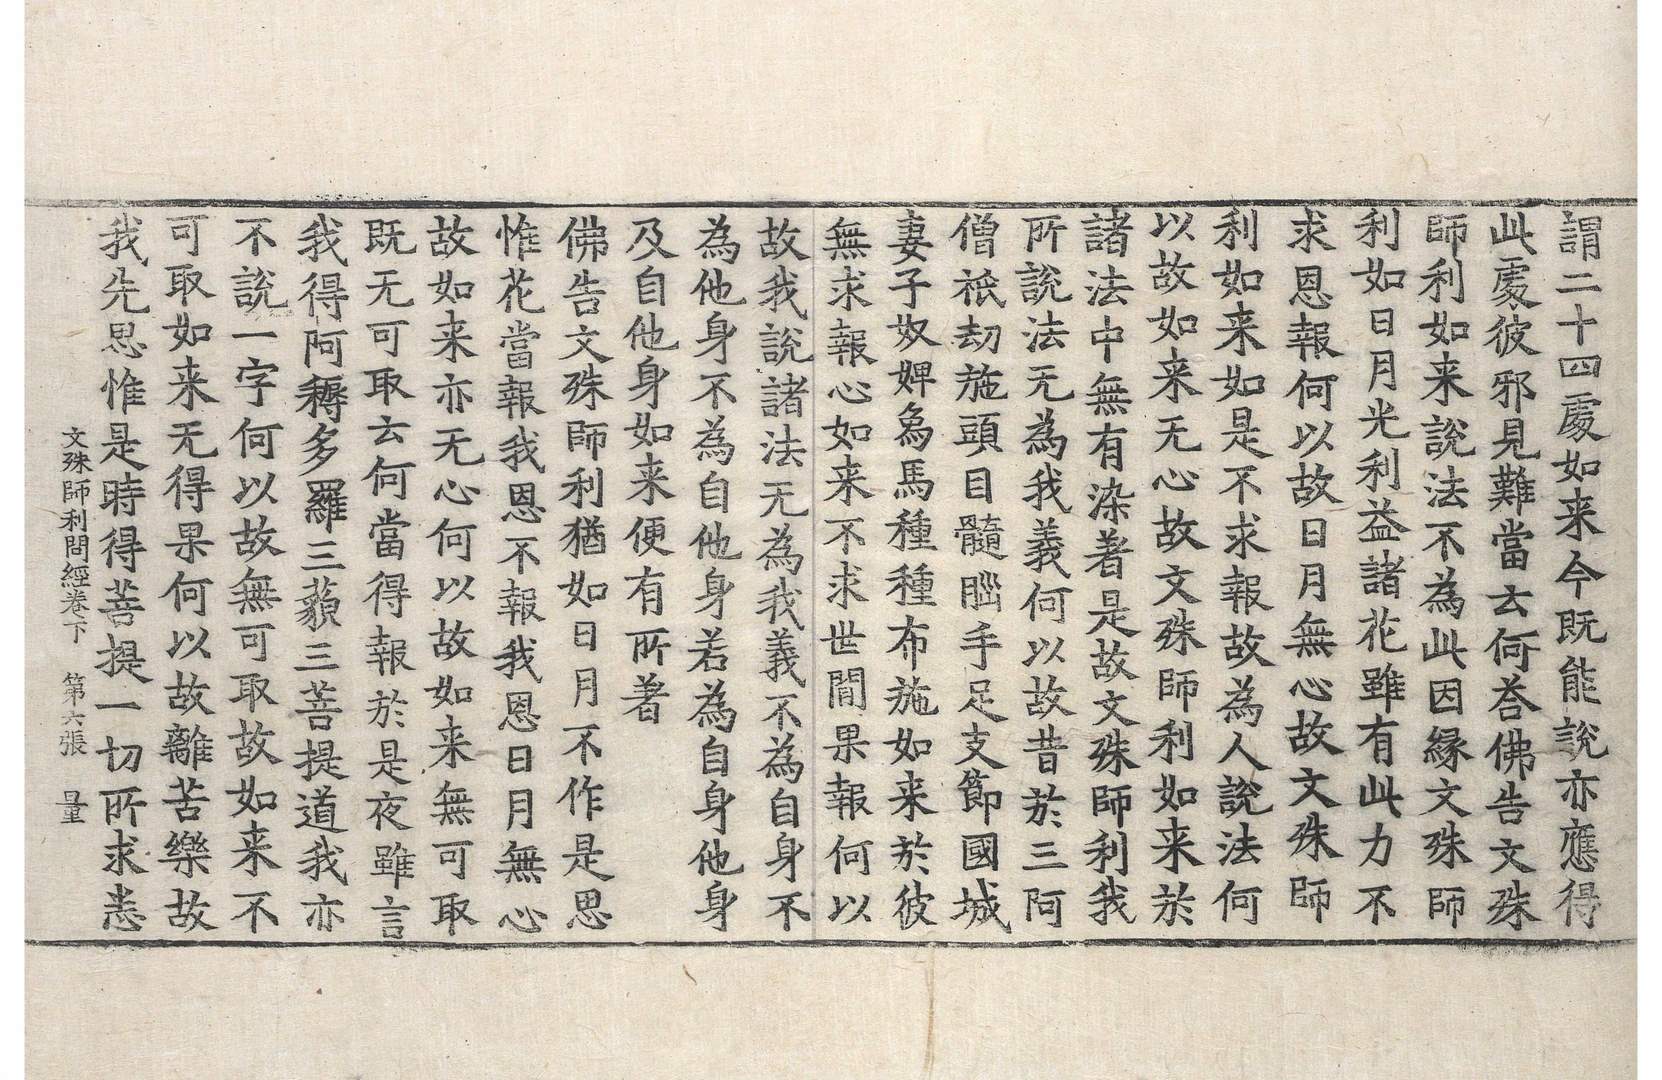 謂二十四處如来今既能說亦應得
此處彼邪見難當云何荅佛告文殊
師利如来說法不為此因緣文殊師
利如日月光利益諸花雖有此力不
求恩報何以故日月無心故文殊師
利如来如是不求報故為人說法何
以故如来无心故文殊師利如来於
諸法中無有染著是故文殊師利我
所說法无為我義何以故昔於三阿
僧祇劫施頭目髓𦛁手足支節國城
妻子奴婢象馬種種布施如来於彼
無求報心如来不求世間果報何以
故我說諸法无為我義不為自身不
為他身不為自他身若為自身他身
及自他身如来便有所著
佛告文殊師利猶如日月不作是思
惟花當報我恩不報我恩日月無心
故如来亦无心何以故如来無可取
既无可取云何當得報於是夜雖言
我得阿耨多羅三藐三菩提道我亦
不說一字何以故無可取故如来不
可取如来无得果何以故離苦樂故
我先思惟是時得菩提一切所求悉
文殊師利問經卷下　第六張　量